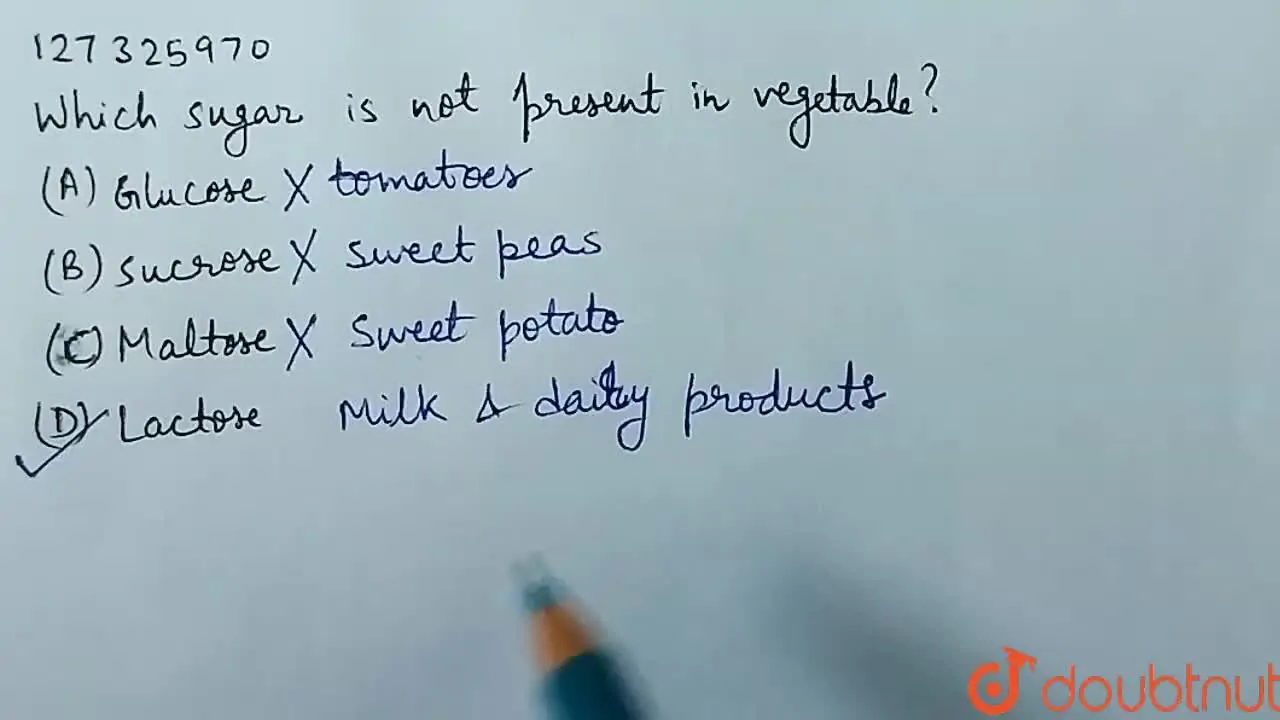 127325970
Which sugar is not present in vegetable?
(A) Glucose X tomatoes
(B) Sucrose X sweet peas
(C) Maltose X Sweet potato
(D) Lactose Milk & dairy products
doubtnut